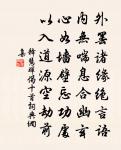 外罷諸緣絕言語
內無喘息合幽玄
心如墻壁忘功處
以入道源空劫前
釋慧暉偈十首詞典網
集